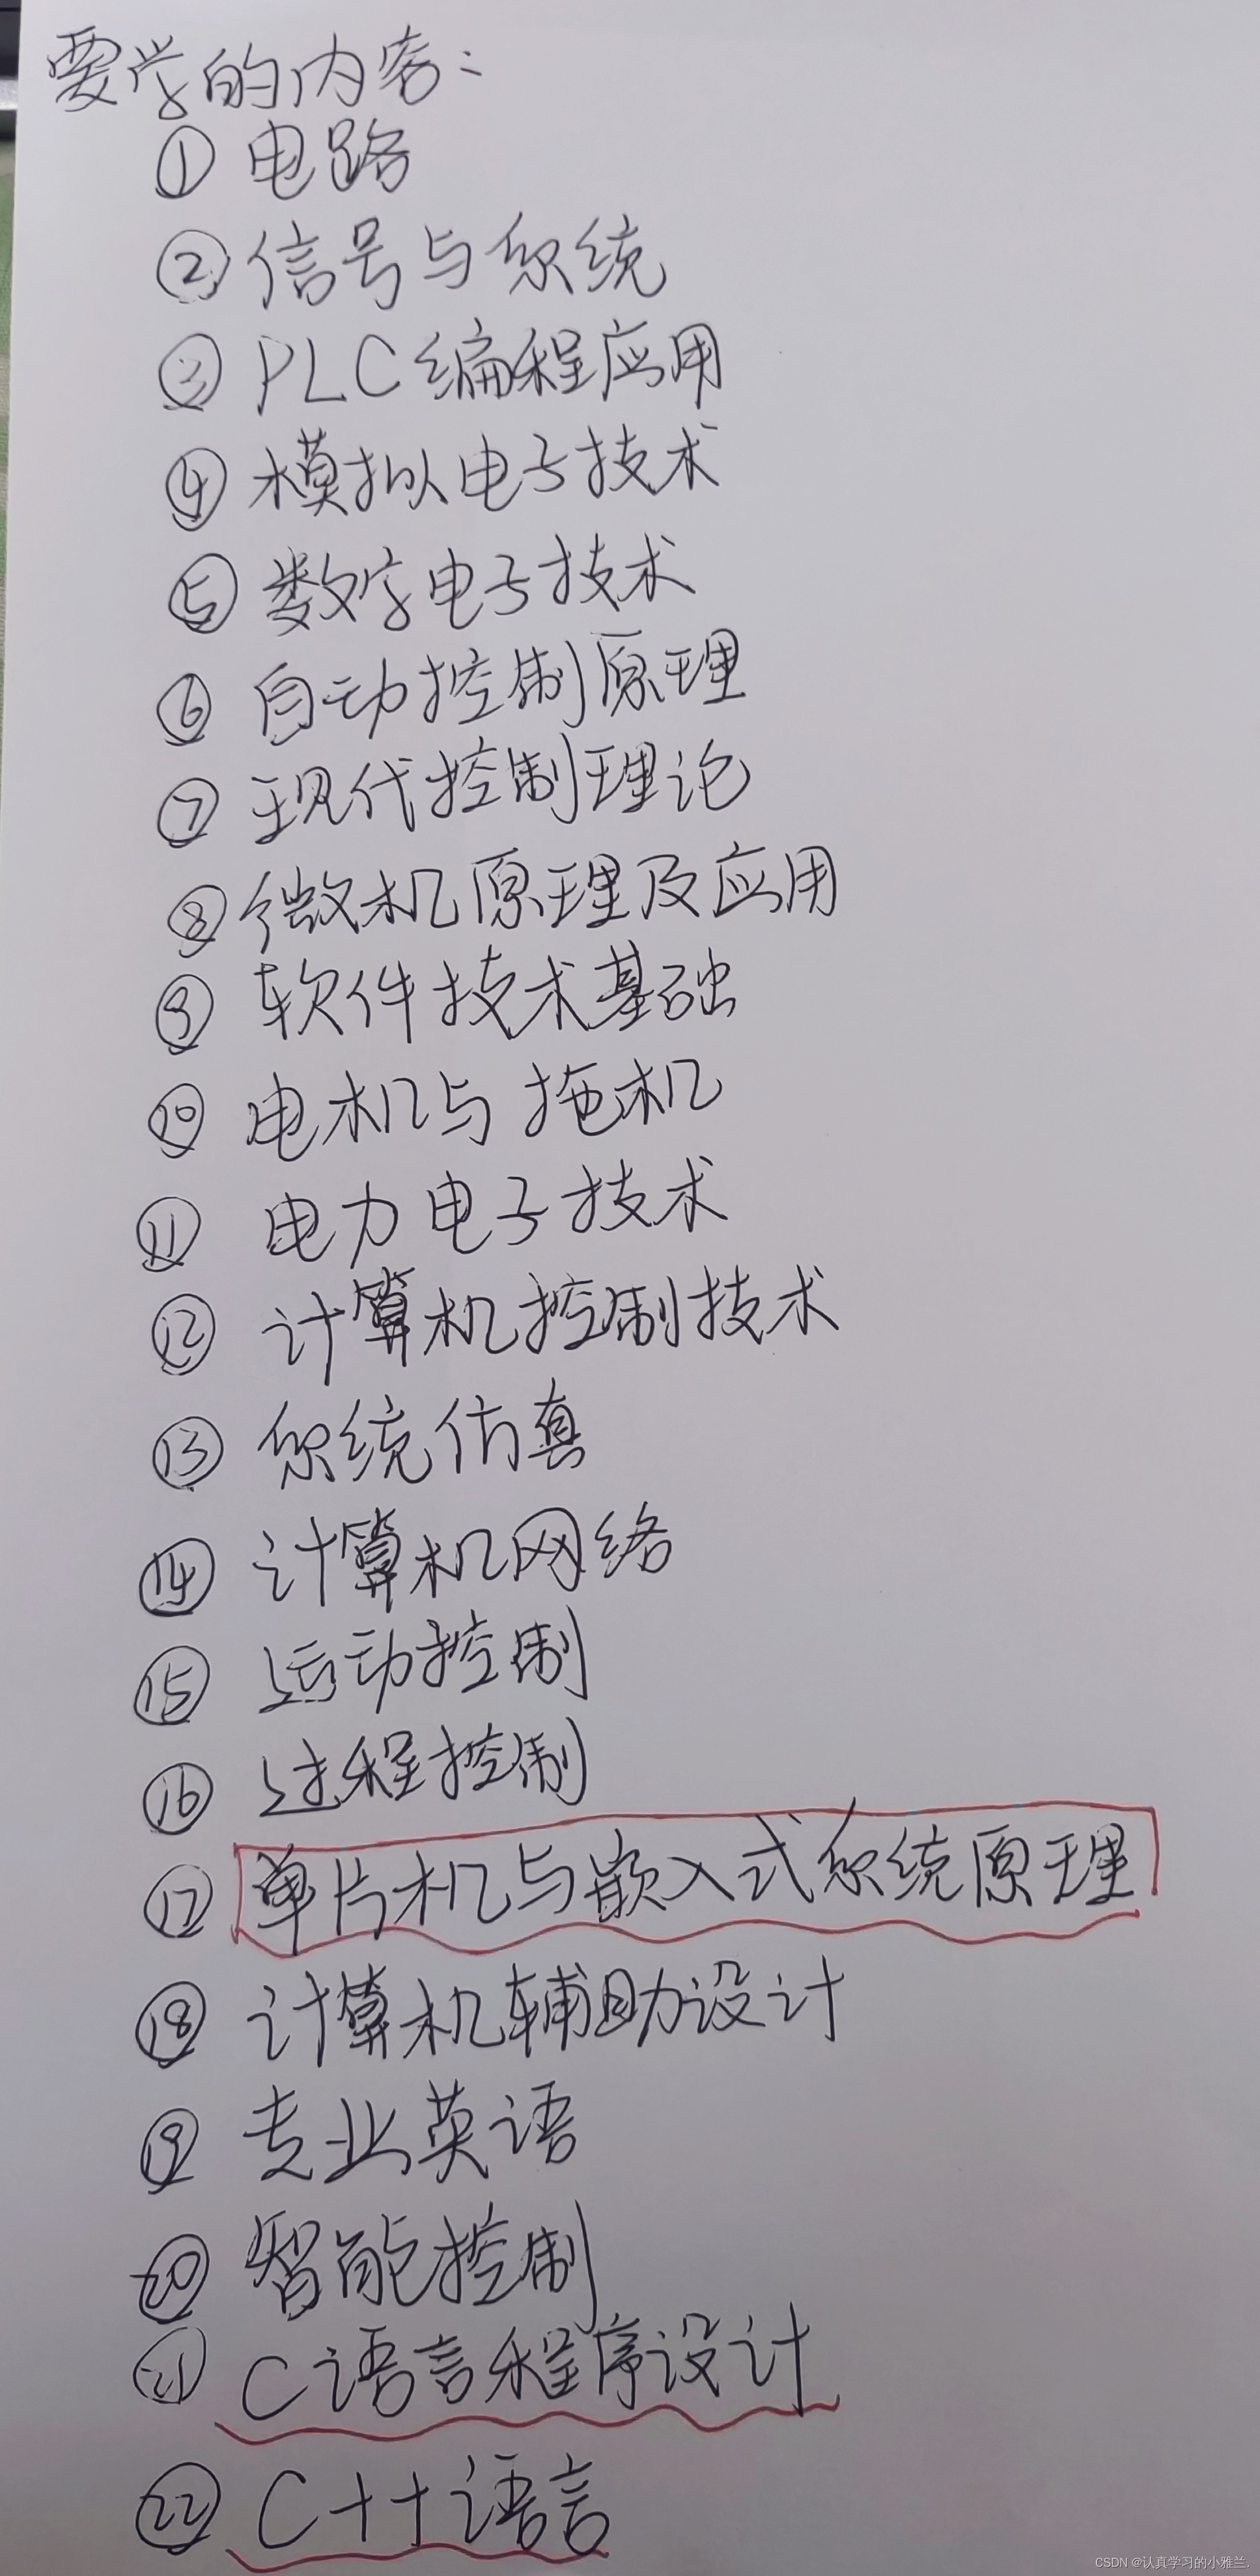 要学的内容:
① 电路
② 信号与系统
③ PLC编程应用
④ 模拟电子技术
⑤ 数字电子技术
⑥ 自动控制原理
⑦ 现代控制理论
⑧ 微机原理及应用
⑨ 软件技术基础
⑩ 电机与拖机
⑪ 电力电子技术
⑫ 计算机控制技术
⑬ 系统仿真
⑭ 计算机网络
⑮ 运动控制
⑯ 过程控制
⑰ 单片机与嵌入式系统原理
⑱ 计算机辅助设计
⑲ 专业英语
⑳ 智能控制
㉑ C语言程序设计
㉒ C++语言
CSDN @认真学习的小雅兰